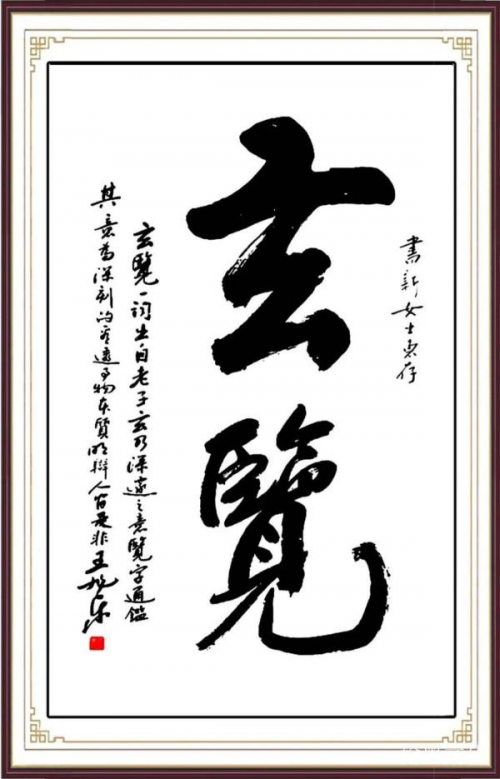 書新女士惠存
玄覽
玄覽一词出自老子玄乃深遠之意覽字通鑑
其意為深刻的看透事物本質明辯人是非王